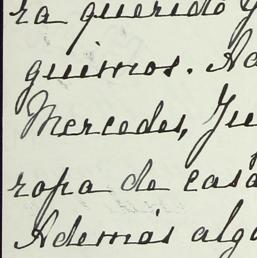 ra querido y
guimos. Ad
Mercedes, Ju
ropa de casa
Además algu